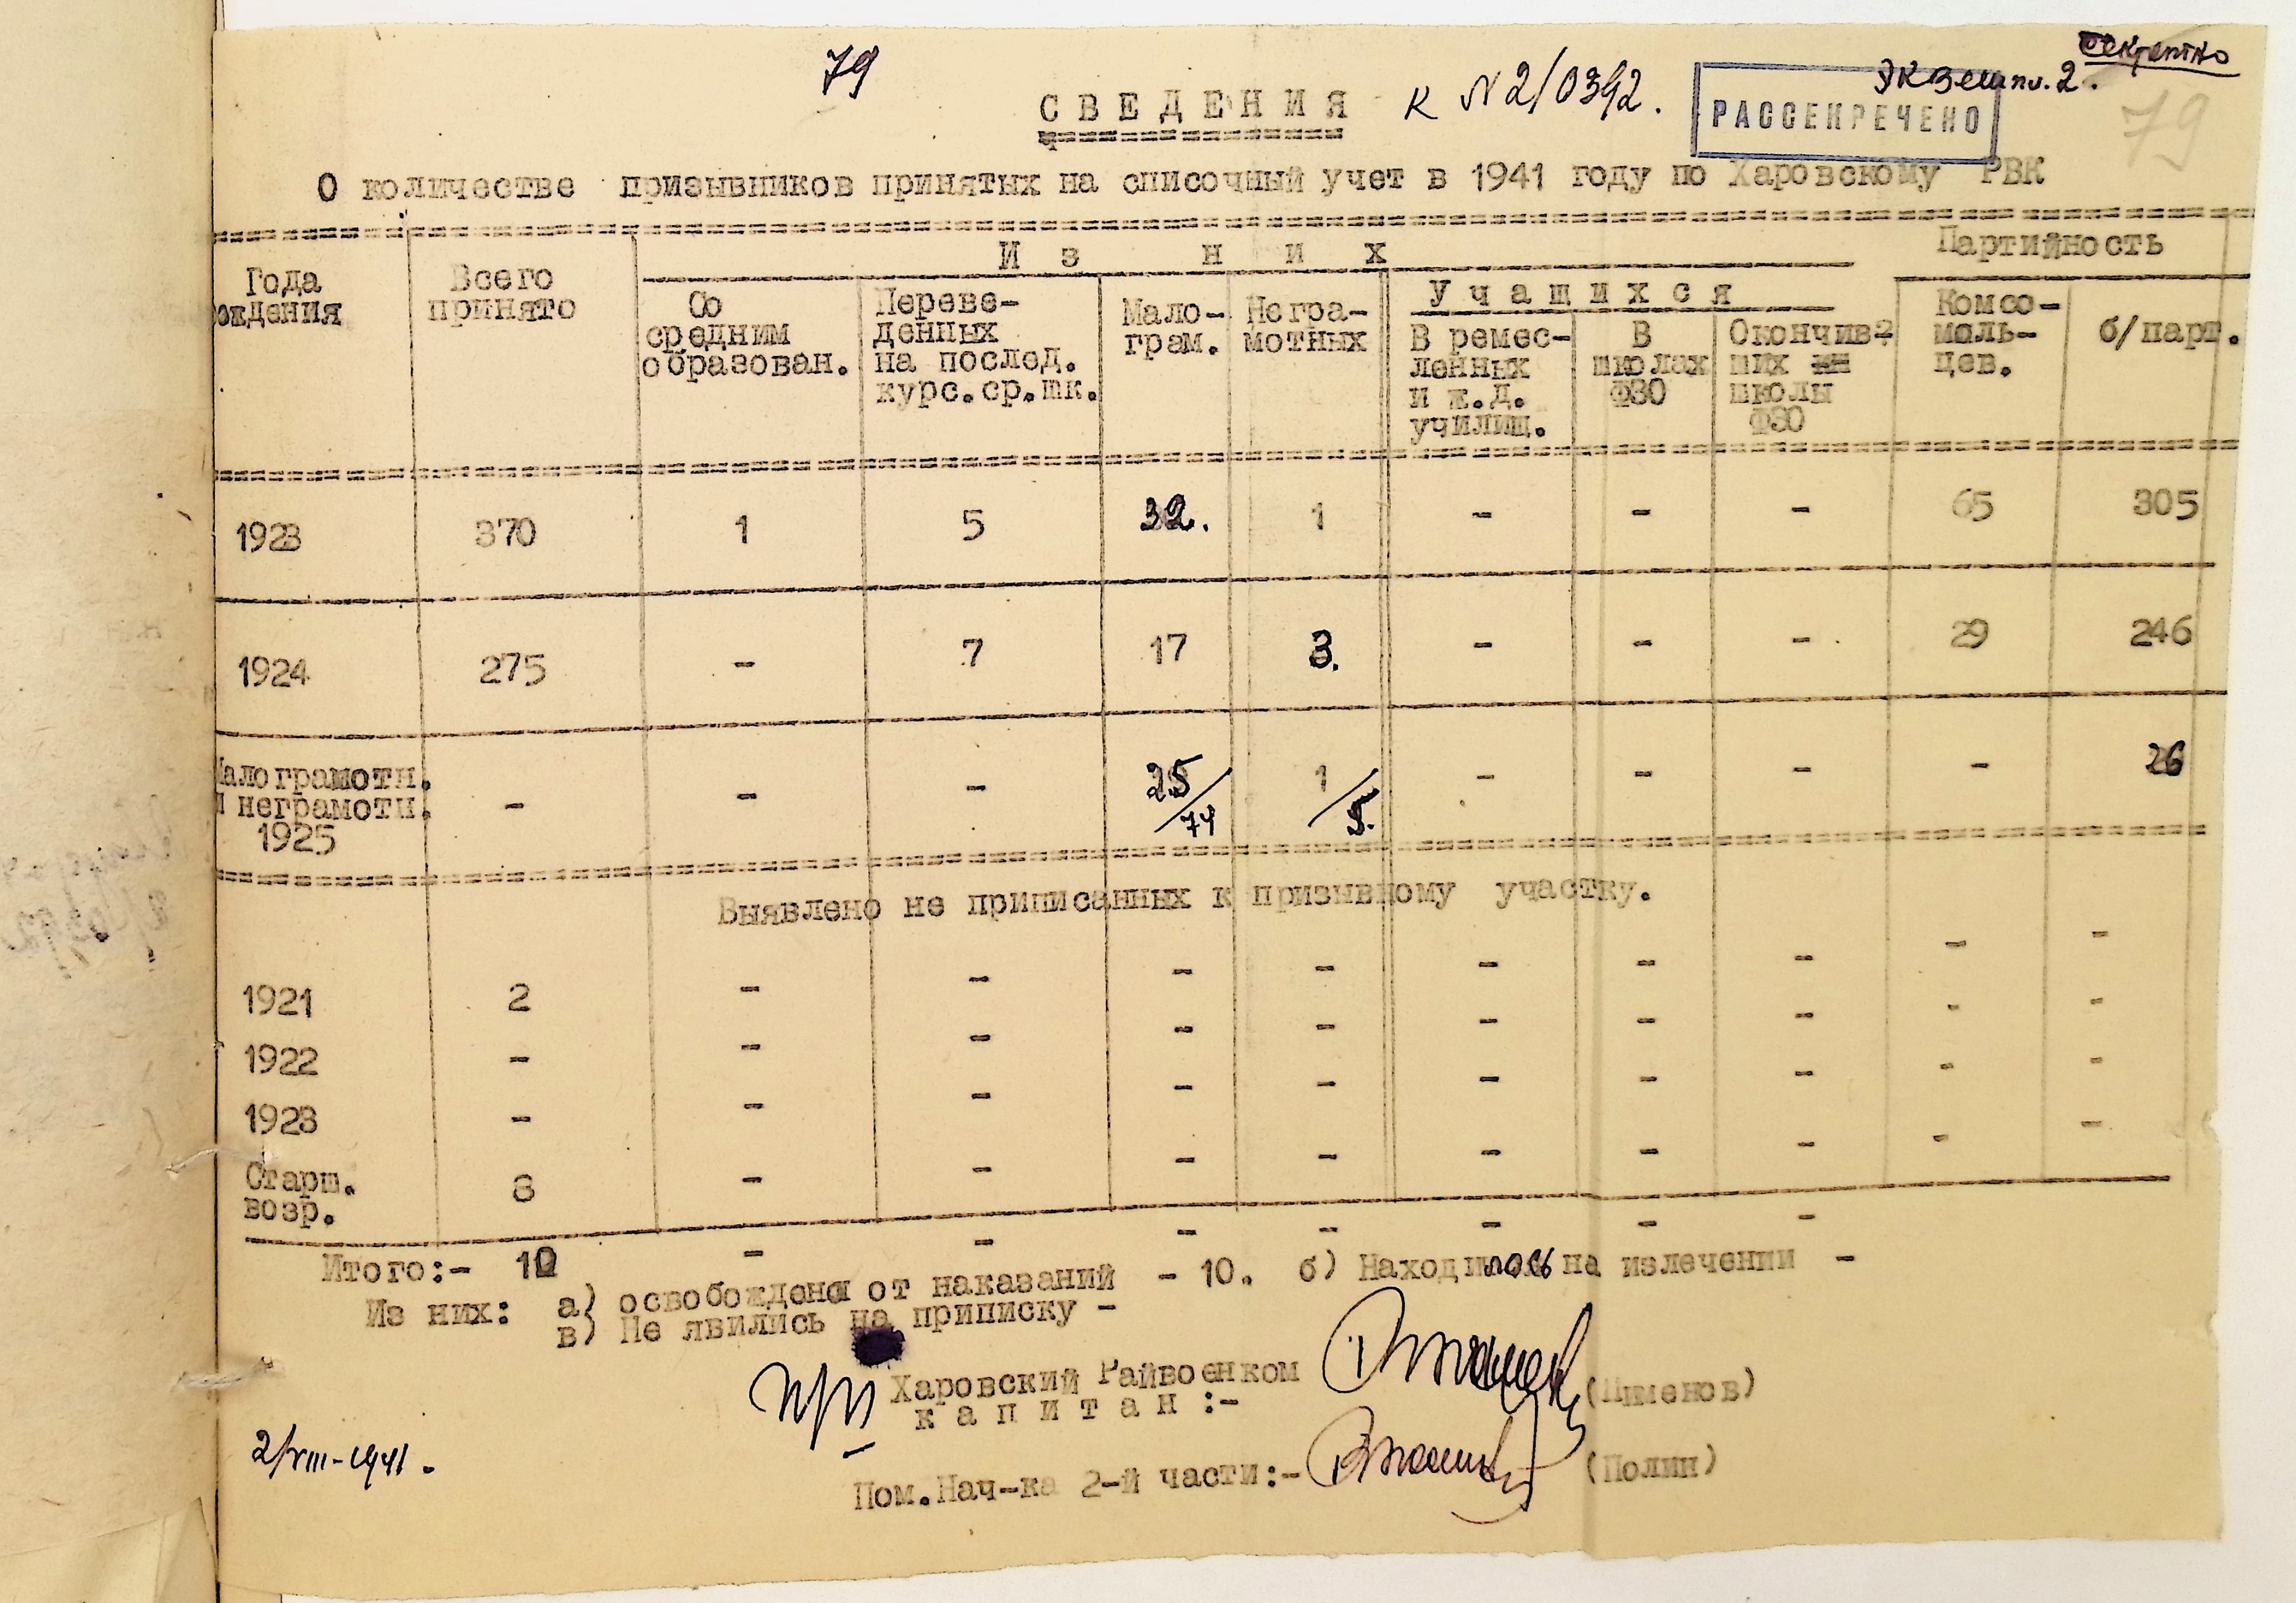 Секретно
79
Экземпл. 2.
СВЕДЕНИЯ К №2/0392.
РАССЕКРЕЧЕНО
79
О количестве призывников принятых на списочный учет в 1941 году по Харовскому РВК
Из них
Партийность
Года
рождения
Всего
принято
Со
средним
образован.
Переве-
денных
на послед.
курс.ср.шк.
Мало-
грам.
Негра-
мотных
Учащихся
В ремес-
ленных
и ж.д.
училищ.
В
школах
ФЗО
Окончив-
ших
школы
ФЗО
Комсо-
моль-
цев.
б/парт.
1923 370 1 5 32. 1 - - - 65 305
1924 275 - 7 17 3. - - - 29 246
Малограмотн.
и неграмотн.
1925
- - - 25/74 1/5. - - - - 26
Выявлено не приписанных к призывному участку.
1921 2 - - - - - - - - -
1922 - - - - - - - - - -
1923 - - - - - - - - - -
Старш.
возр.
8 - - - - - - - - -
Итого:- 10 - - - - - - -
Из них: а) освобождено от наказаний - 10. б) Находилось на излечении -
в) Не явились на приписку -
Харовский Райвоенком
капитан:- (Пименов)
2/VIII-1941.
Пом.Нач-ка 2-й части:- (Полин)